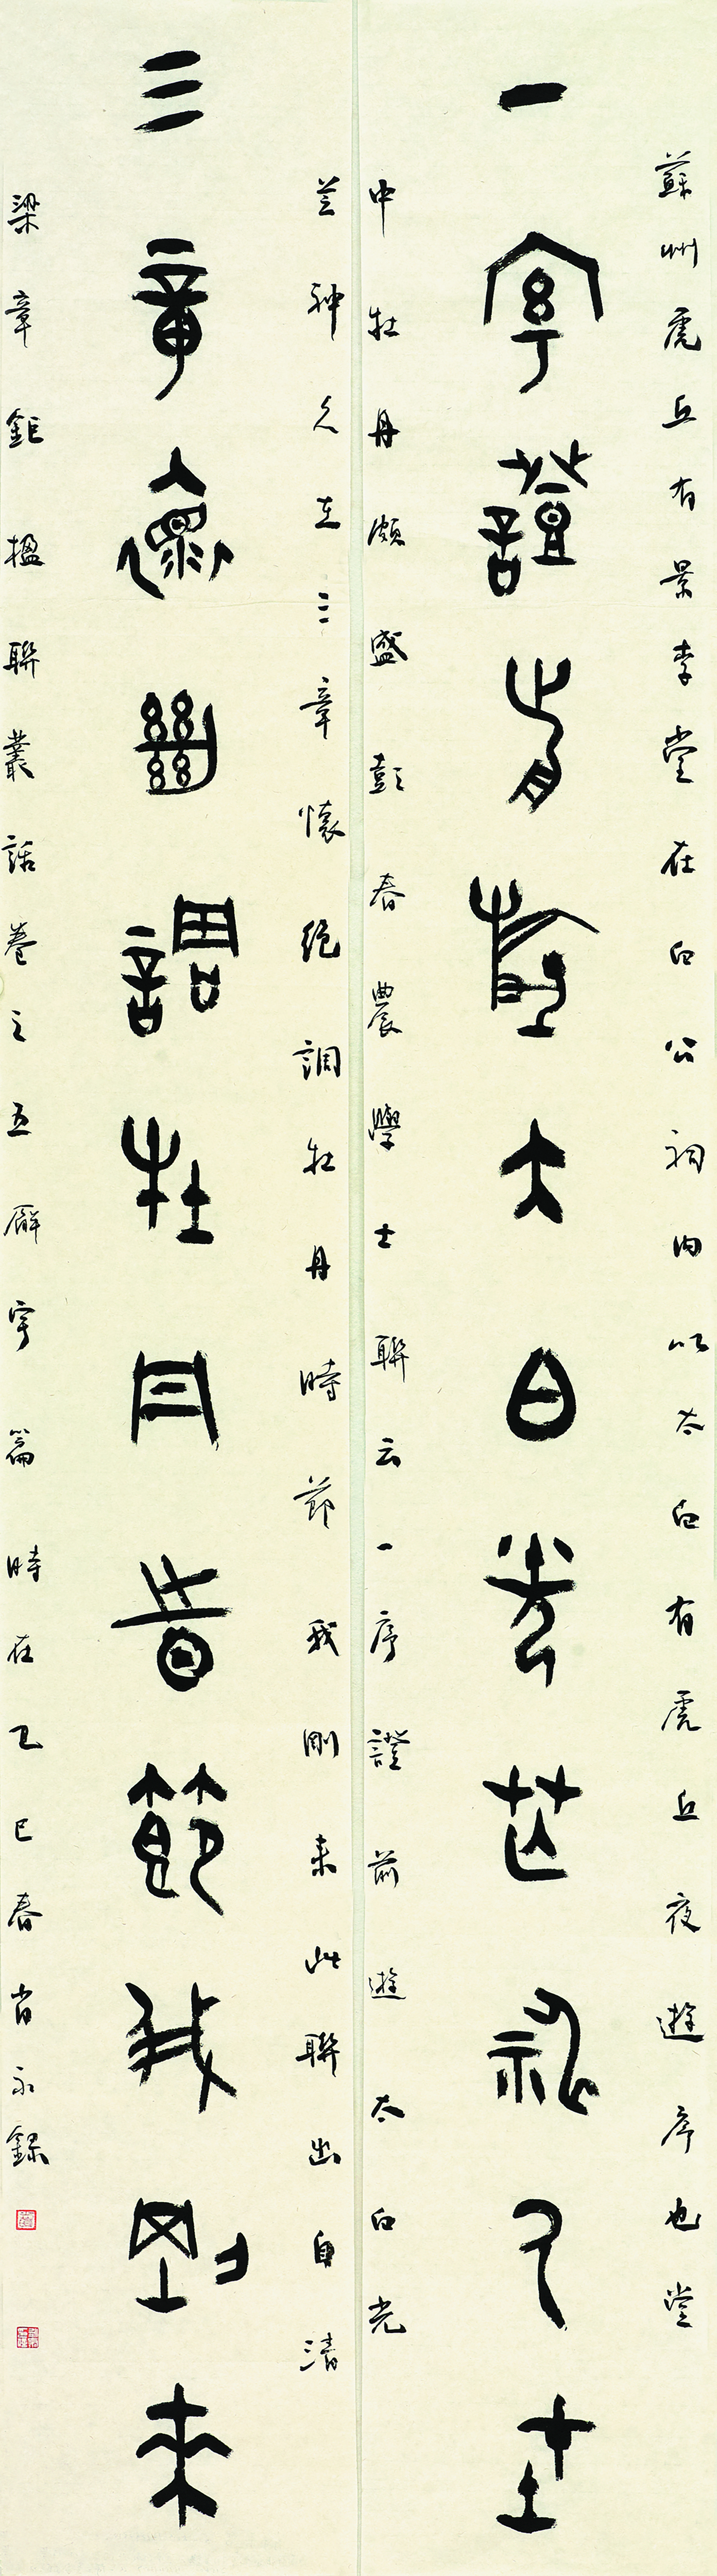 蘇州虎丘有景李堂在白公祠内以太白有虎丘夜遊序也堂
一序證前遊太白光芒神久在
中牡丹頗盛彭春農學士聯云一序證前遊太白光
芒神久在三章懷絕調牡丹時節我剛來此聯出自清
三章懷絕調牡丹時節我剛來
梁章鉅楹聯叢話卷之五廨宇篇時在乙巳春肖永錄